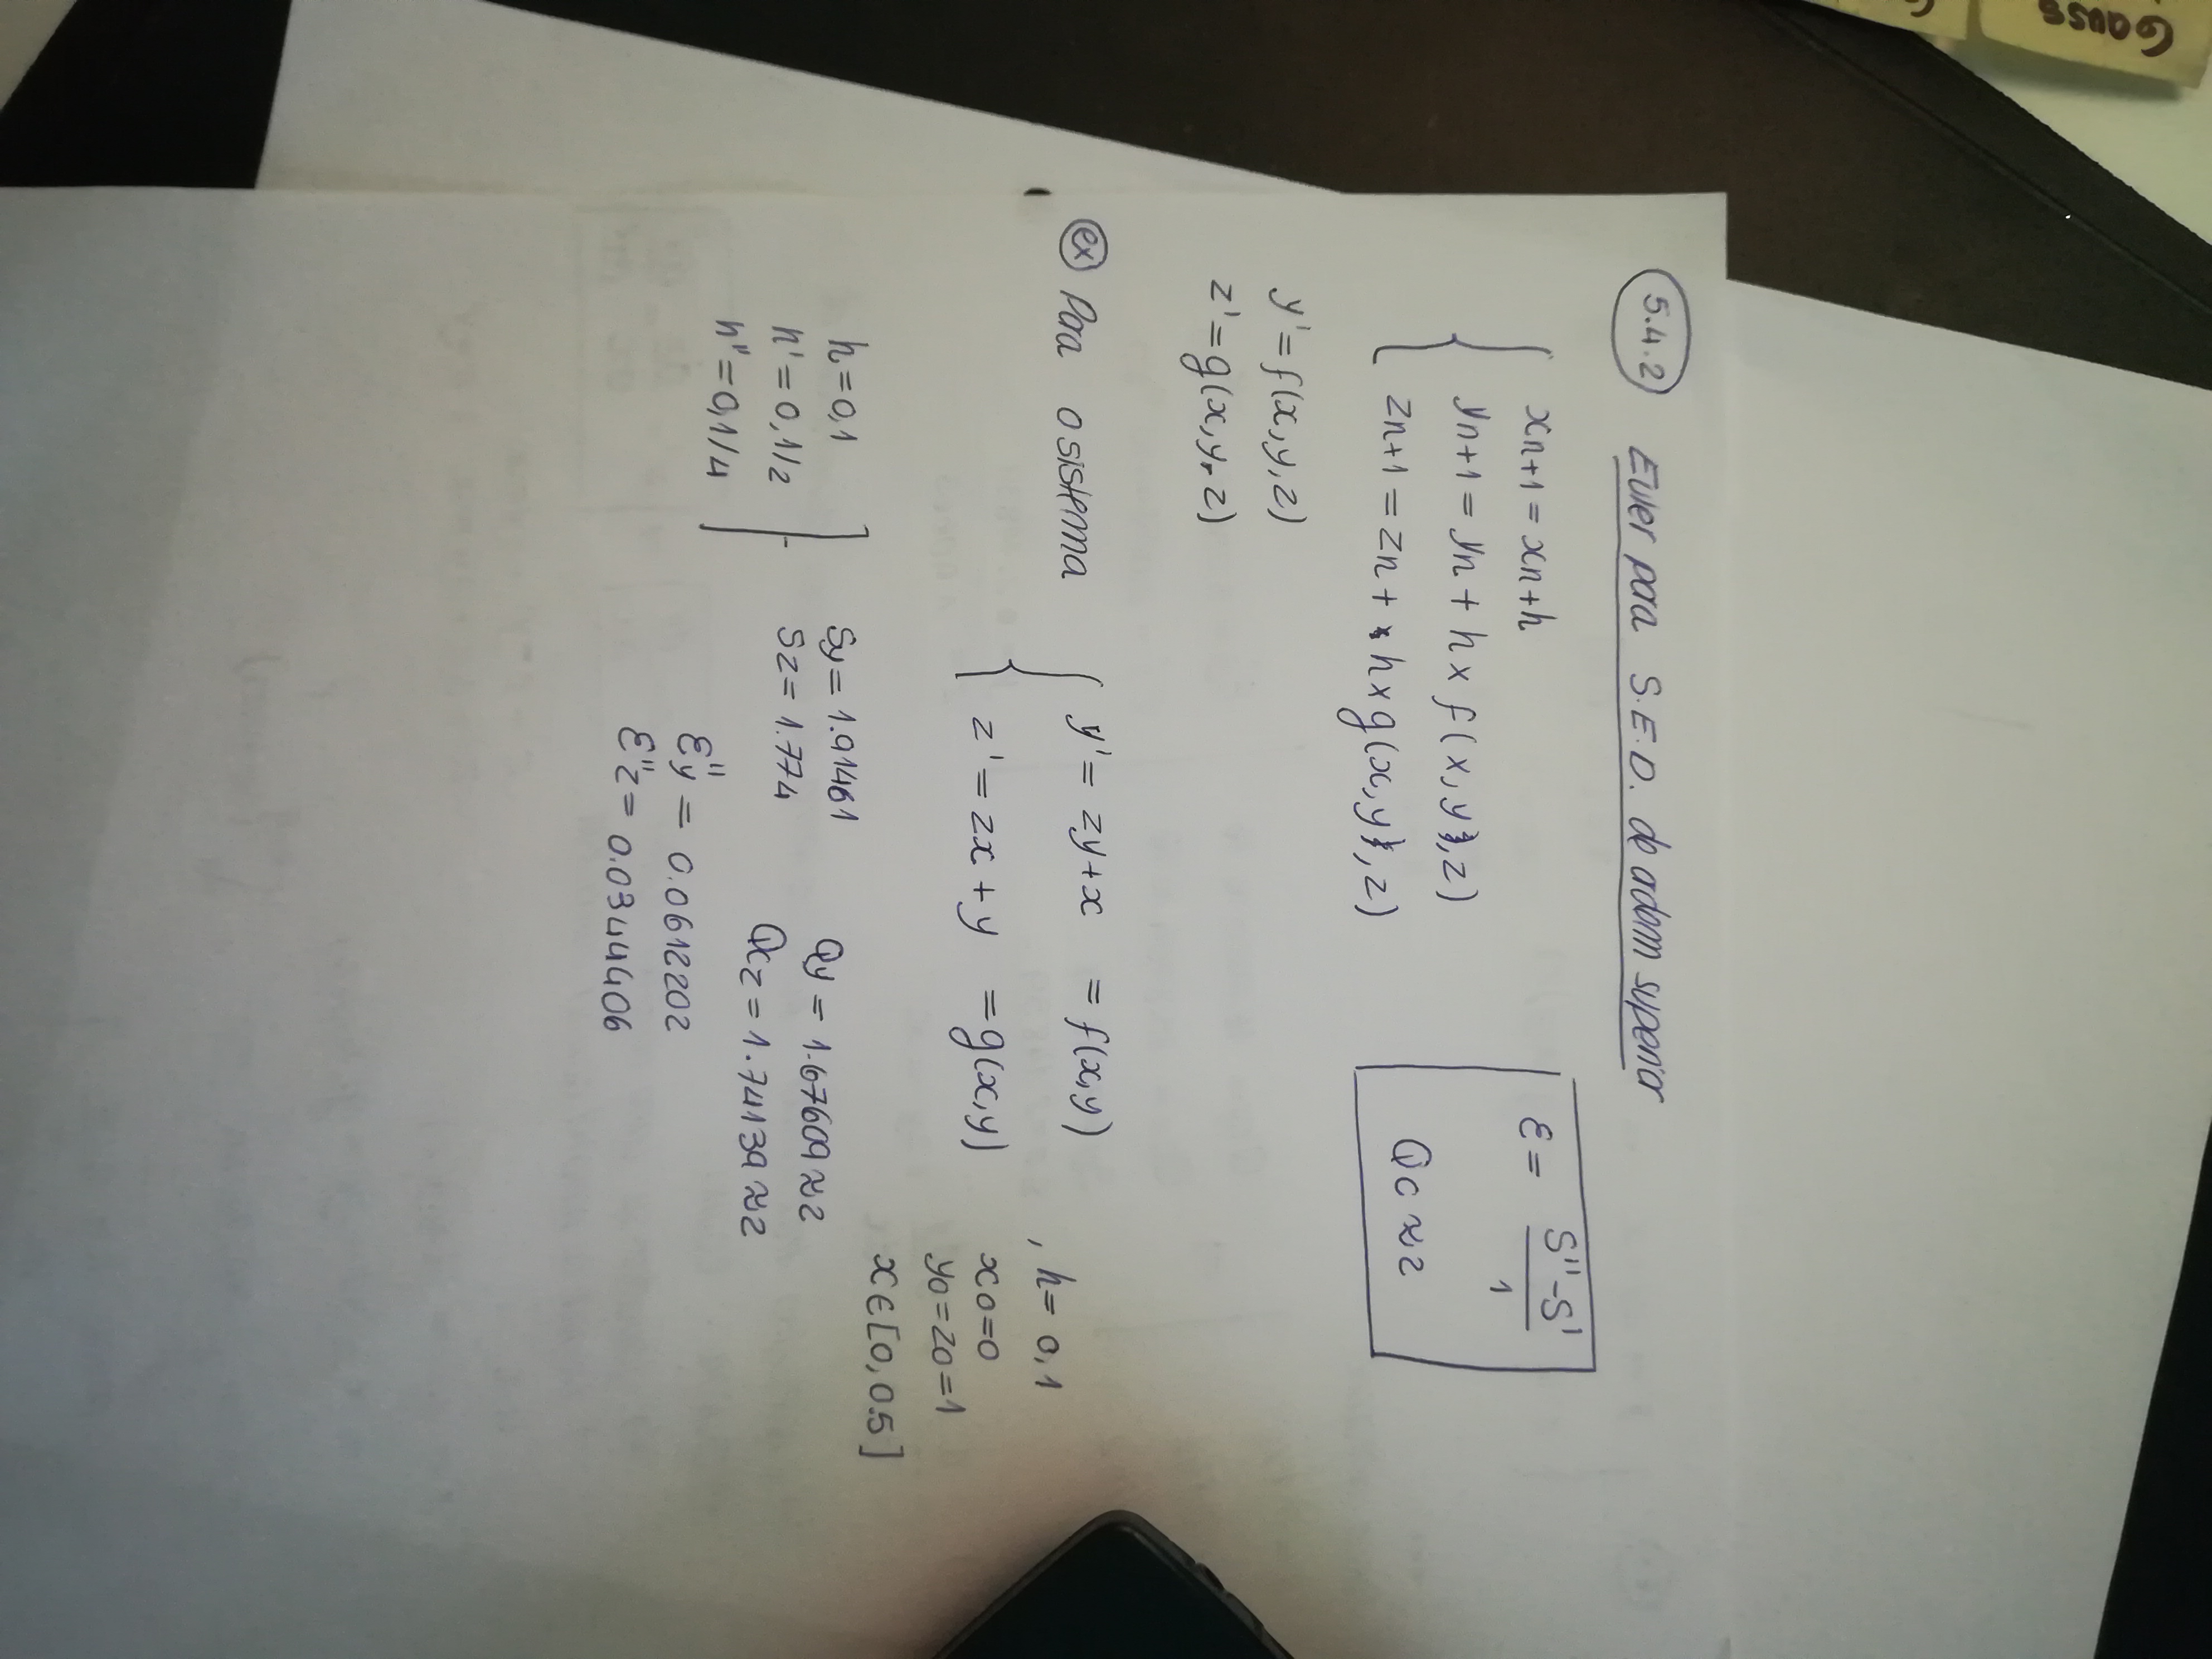 Gauss
5.4.2 Euler para S.E.D. de ordem superior
xn+1 = xn+h
yn+1 = yn + h x f(x, y, z)
zn+1 = zn + h x g(x, y, z)
ε = S''-S' / 1
Qc ≈ 2
y' = f(x, y, z)
z' = g(x, y, z)
ex Para o sistema
y' = zy+x = f(x,y)
z' = zx + y = g(x,y)
, h= 0,1
x0=0
y0=z0=1
x∈[0, 0.5]
h=0,1
h' = 0,1/2
h''=0,1/4
Sy = 1.91461
Sz = 1.774
Qy = 1.67609 ≈ 2
Qcz = 1.74139 ≈ 2
ε''y = 0.0612202
ε''z = 0.0344406